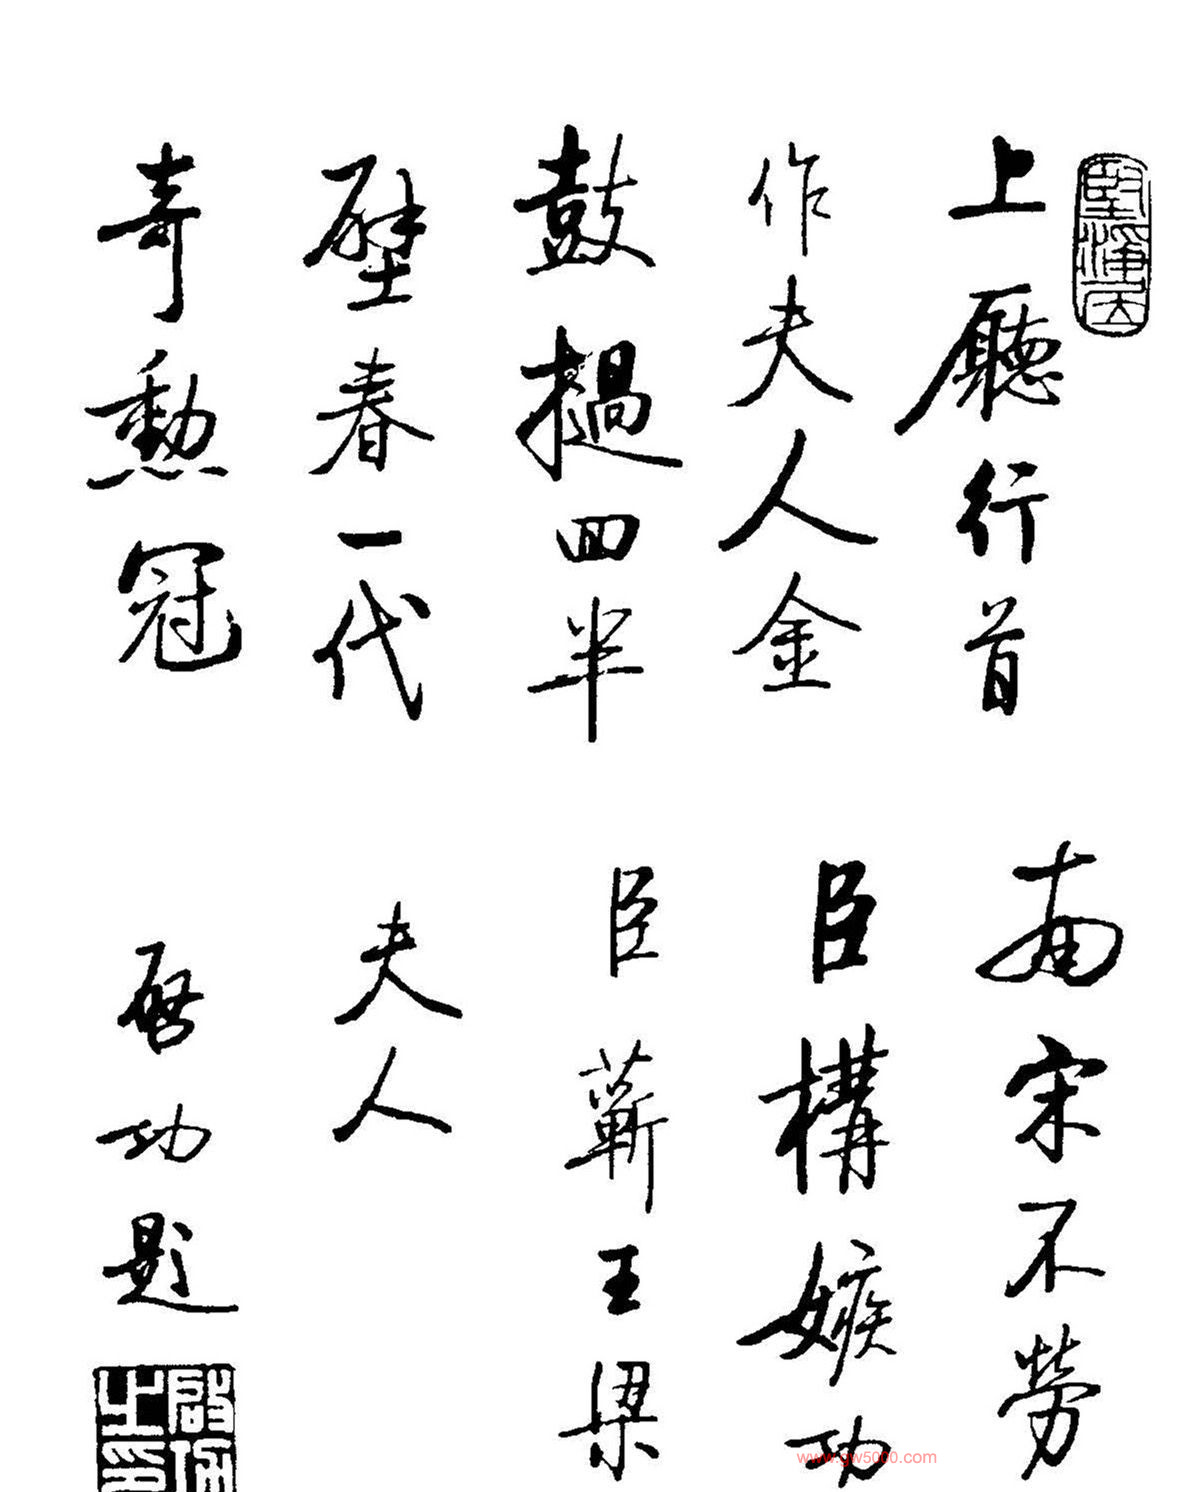 堅淨居
上廳行首
作夫人金
鼓撾回半
壁春一代
奇勳冠
南宋不勞
臣構嫉功
臣 蘄王梁
夫人
啓功題
www.gw5000.com